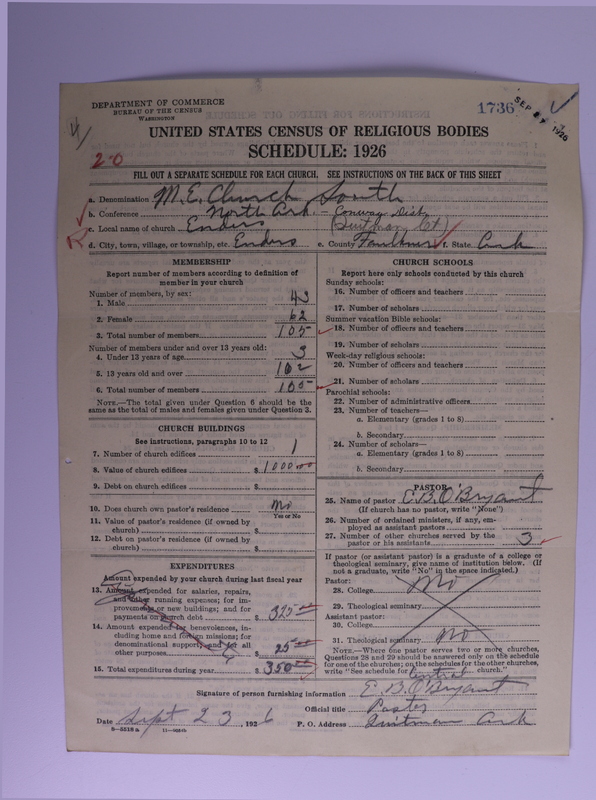 DEPARTMENT OF COMMERCE
BUREAU OF THE CENSUS
WASHINGTON
1736
SEP 27 1926
4/
20
UNITED STATES CENSUS OF RELIGIOUS BODIES
SCHEDULE: 1926
FILL OUT A SEPARATE SCHEDULE FOR EACH CHURCH. SEE INSTRUCTIONS ON THE BACK OF THIS SHEET
a. Denomination M.E. Church South
b. Conference North Ark. - Conway Dist
c. Local name of church Enders (Quitman Ct)
d. City, town, village, or township, etc. Enders e. County Faulkner f. State Ark
MEMBERSHIP
Report number of members according to definition of
member in your church
Number of members, by sex:
1. Male 43
2. Female 62
3. Total number of members 105
Number of members under and over 13 years old:
4. Under 13 years of age 3
5. 13 years old and over 102
6. Total number of members 105
NOTE.—The total given under Question 6 should be the
same as the total of males and females given under Question 3.
CHURCH BUILDINGS
See instructions, paragraphs 10 to 12
7. Number of church edifices 1
8. Value of church edifices $ 1000.00
9. Debt on church edifices $
10. Does church own pastor's residence? No
Yes or No
11. Value of pastor's residence (if owned by
church) $
12. Debt on pastor's residence (if owned by
church) $
EXPENDITURES
Amount expended by your church during last fiscal year
13. Amount expended for salaries, repairs,
and other running expenses; for im-
provements or new buildings; and for
payments on church debt $ 325.00
14. Amount expended for benevolences, in-
cluding home and foreign missions; for
denominational support; and for all
other purposes $ 25.00
15. Total expenditures during year $ 350.00
CHURCH SCHOOLS
Report here only schools conducted by this church
Sunday schools:
16. Number of officers and teachers
17. Number of scholars
Summer vacation Bible schools:
18. Number of officers and teachers
19. Number of scholars
Week-day religious schools:
20. Number of officers and teachers
21. Number of scholars
Parochial schools:
22. Number of administrative officers
23. Number of teachers—
a. Elementary (grades 1 to 8)
b. Secondary
24. Number of scholars—
a. Elementary (grades 1 to 8)
b. Secondary
PASTOR
25. Name of pastor E. B. O'Bryant
(If church has no pastor, write "None")
26. Number of ordained ministers, if any, em-
ployed as assistant pastors
27. Number of other churches served by the
pastor or his assistants 3
If pastor (or assistant pastor) is a graduate of a college or
theological seminary, give name of institution below. (If
not a graduate, write "No" in the space indicated.)
Pastor:
28. College No
29. Theological seminary
Assistant pastor:
30. College
31. Theological seminary No
NOTE.—Where one pastor serves two or more churches,
Questions 28 and 29 should be answered only on the schedule
for one of the churches; on the schedules for the other churches,
write "See schedule for Central church."
Signature of person furnishing information E. B. O'Bryant
Official title Pastor
Date Sept 23, 1926 P. O. Address Quitman Ark
8—5518 a